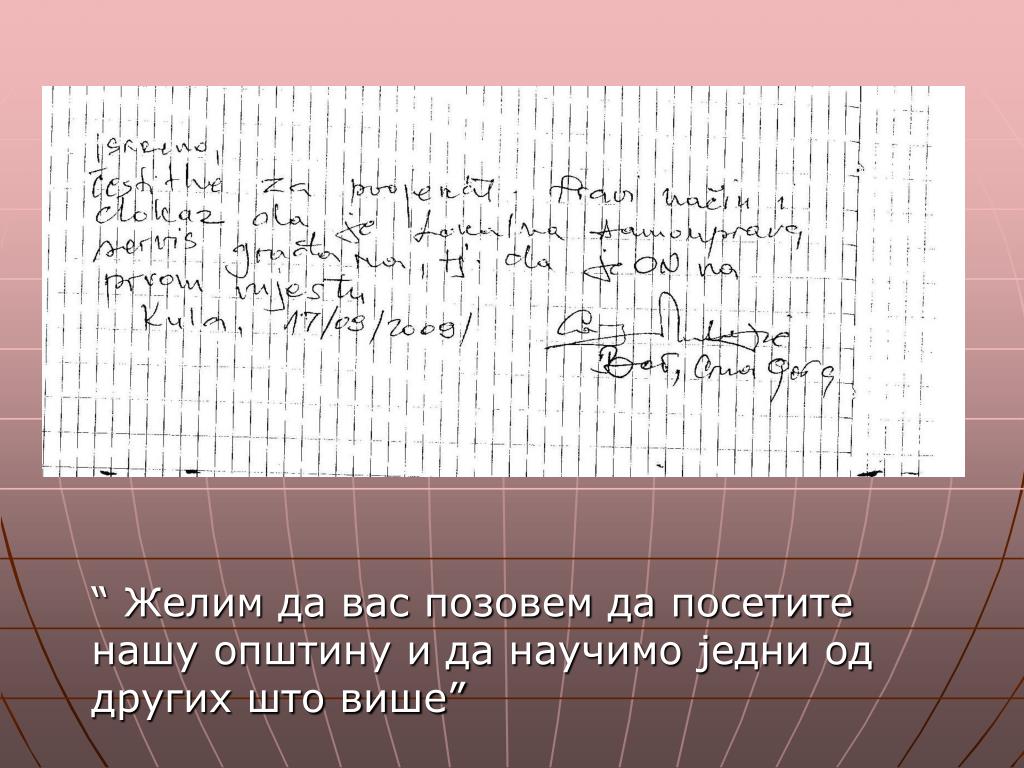 iskreno,
čestitke za projekat. Pravi način i
dokaz da je lokalna samouprava,
servis građana, tj. da je ON na
prvom mjestu
Kula, 17/09/2009/
Crna Gora
“ Желим да вас позовем да посетите
нашу општину и да научимо једни од
других што више”